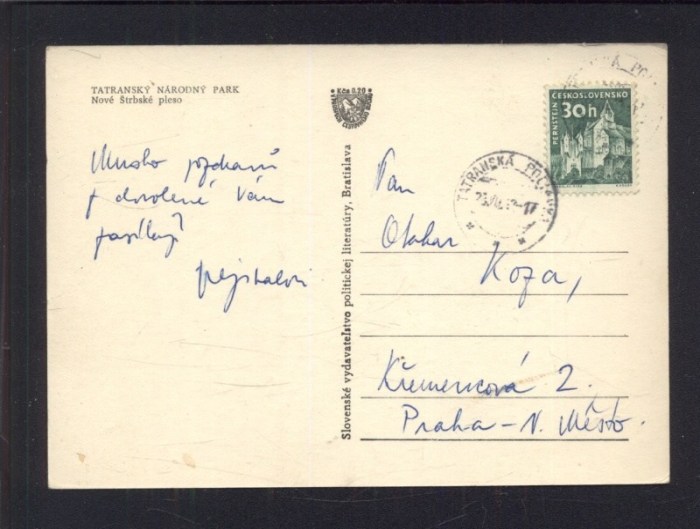 TATRANSKÝ NÁRODNÝ PARK
Nové Štrbské pleso
Kčs 0.20
Mnoho pozdravů
z dovolené Vám
Slovenské vydavateľstvo politickej literatúry, Bratislava
ČESKOSLOVENSKO
PERNŠTEJN
30h
TATRANSKÁ
Pan
Otakar
Koza,
Křemencová 2.
Praha - N. Město.